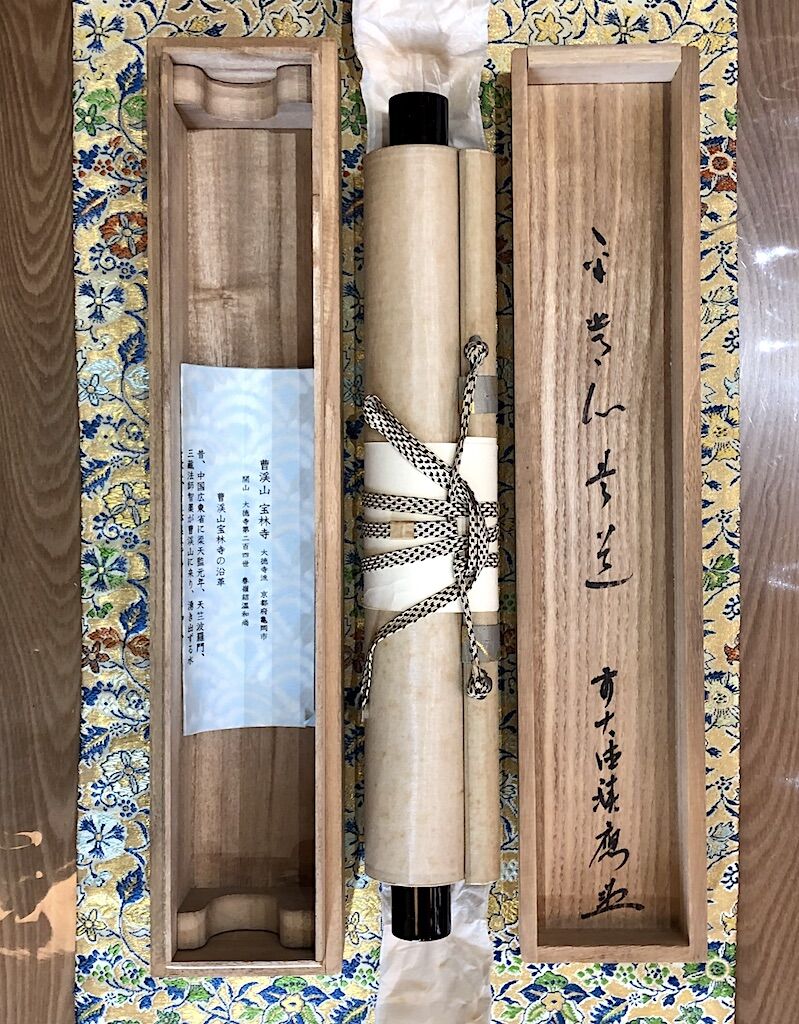 平常心是道
前大徳積應
曹渓山 宝林寺 大徳寺派 京都府亀岡市
開山 大徳寺第二百四世 和尚
曹渓山宝林寺の沿革
昔、中国広東省に梁天監元年、天竺波羅門、
三蔵法師智薬が曹渓山に来り、湧き出ずる水